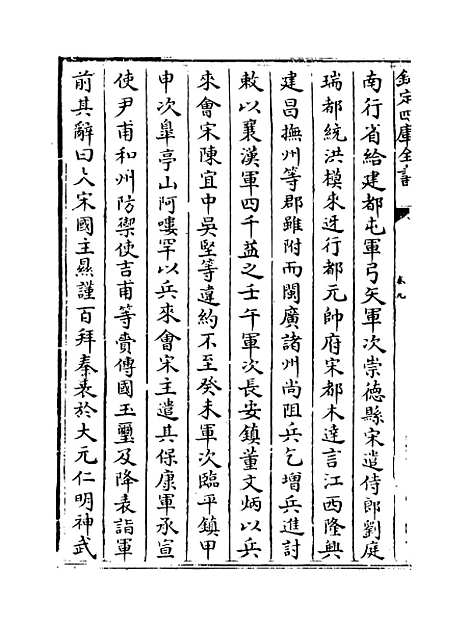 欽定四庫全書
卷九
南行省給建都屯軍弓矢軍次崇德縣宋遣侍郎劉庭
瑞都統洪模來迓行都元帥府宋都木達言江西隆興
建昌撫州等郡雖附而閩廣諸州尚阻兵乞增兵進討
敕以襄漢軍四千益之壬午軍次長安鎮董文炳以兵
來會宋陳宜中吳堅等違約不至癸未軍次臨平鎮甲
申次臯亭山阿嘍罕以兵來會宋主遣其保康軍承宣
使尹甫和州防禦使吉甫等賫傳國玉璽及降表詣軍
前其辭曰大宋國主㬎謹百拜奏表於大元仁明神武